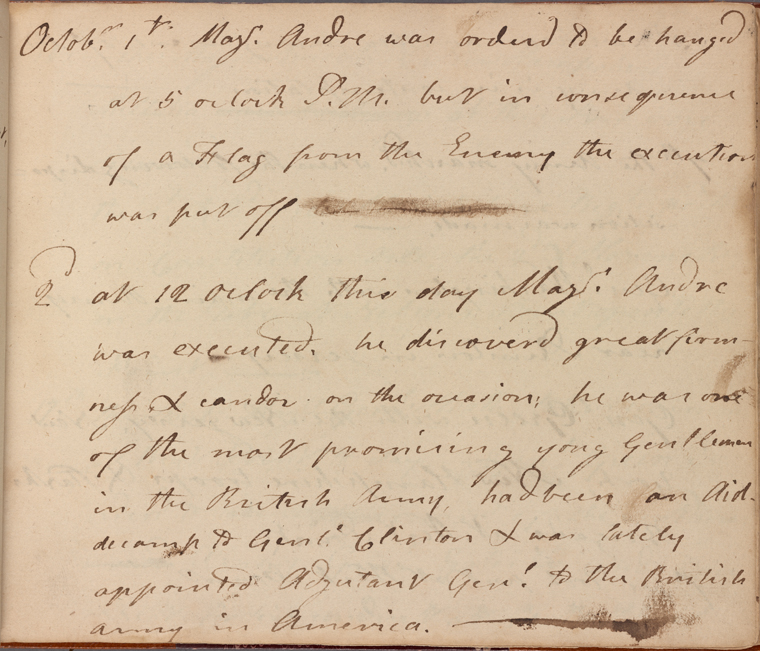 Octobr. 1st. Majr. Andre was orderd to be hanged
at 5 oclock P.M. but in consequence
of a Flag from the Enemy the execution
was put off
2d at 12 Oclock this day Majr. Andre
was executed. he discoverd great firm-
ness & candor on the occasion; he was one
of the most promising yong Gentlemen
in the British Army, had been an Aid-
decamp to Genl. Clinton & was lately
appointed Adjutant Genl. to the British
army in America.